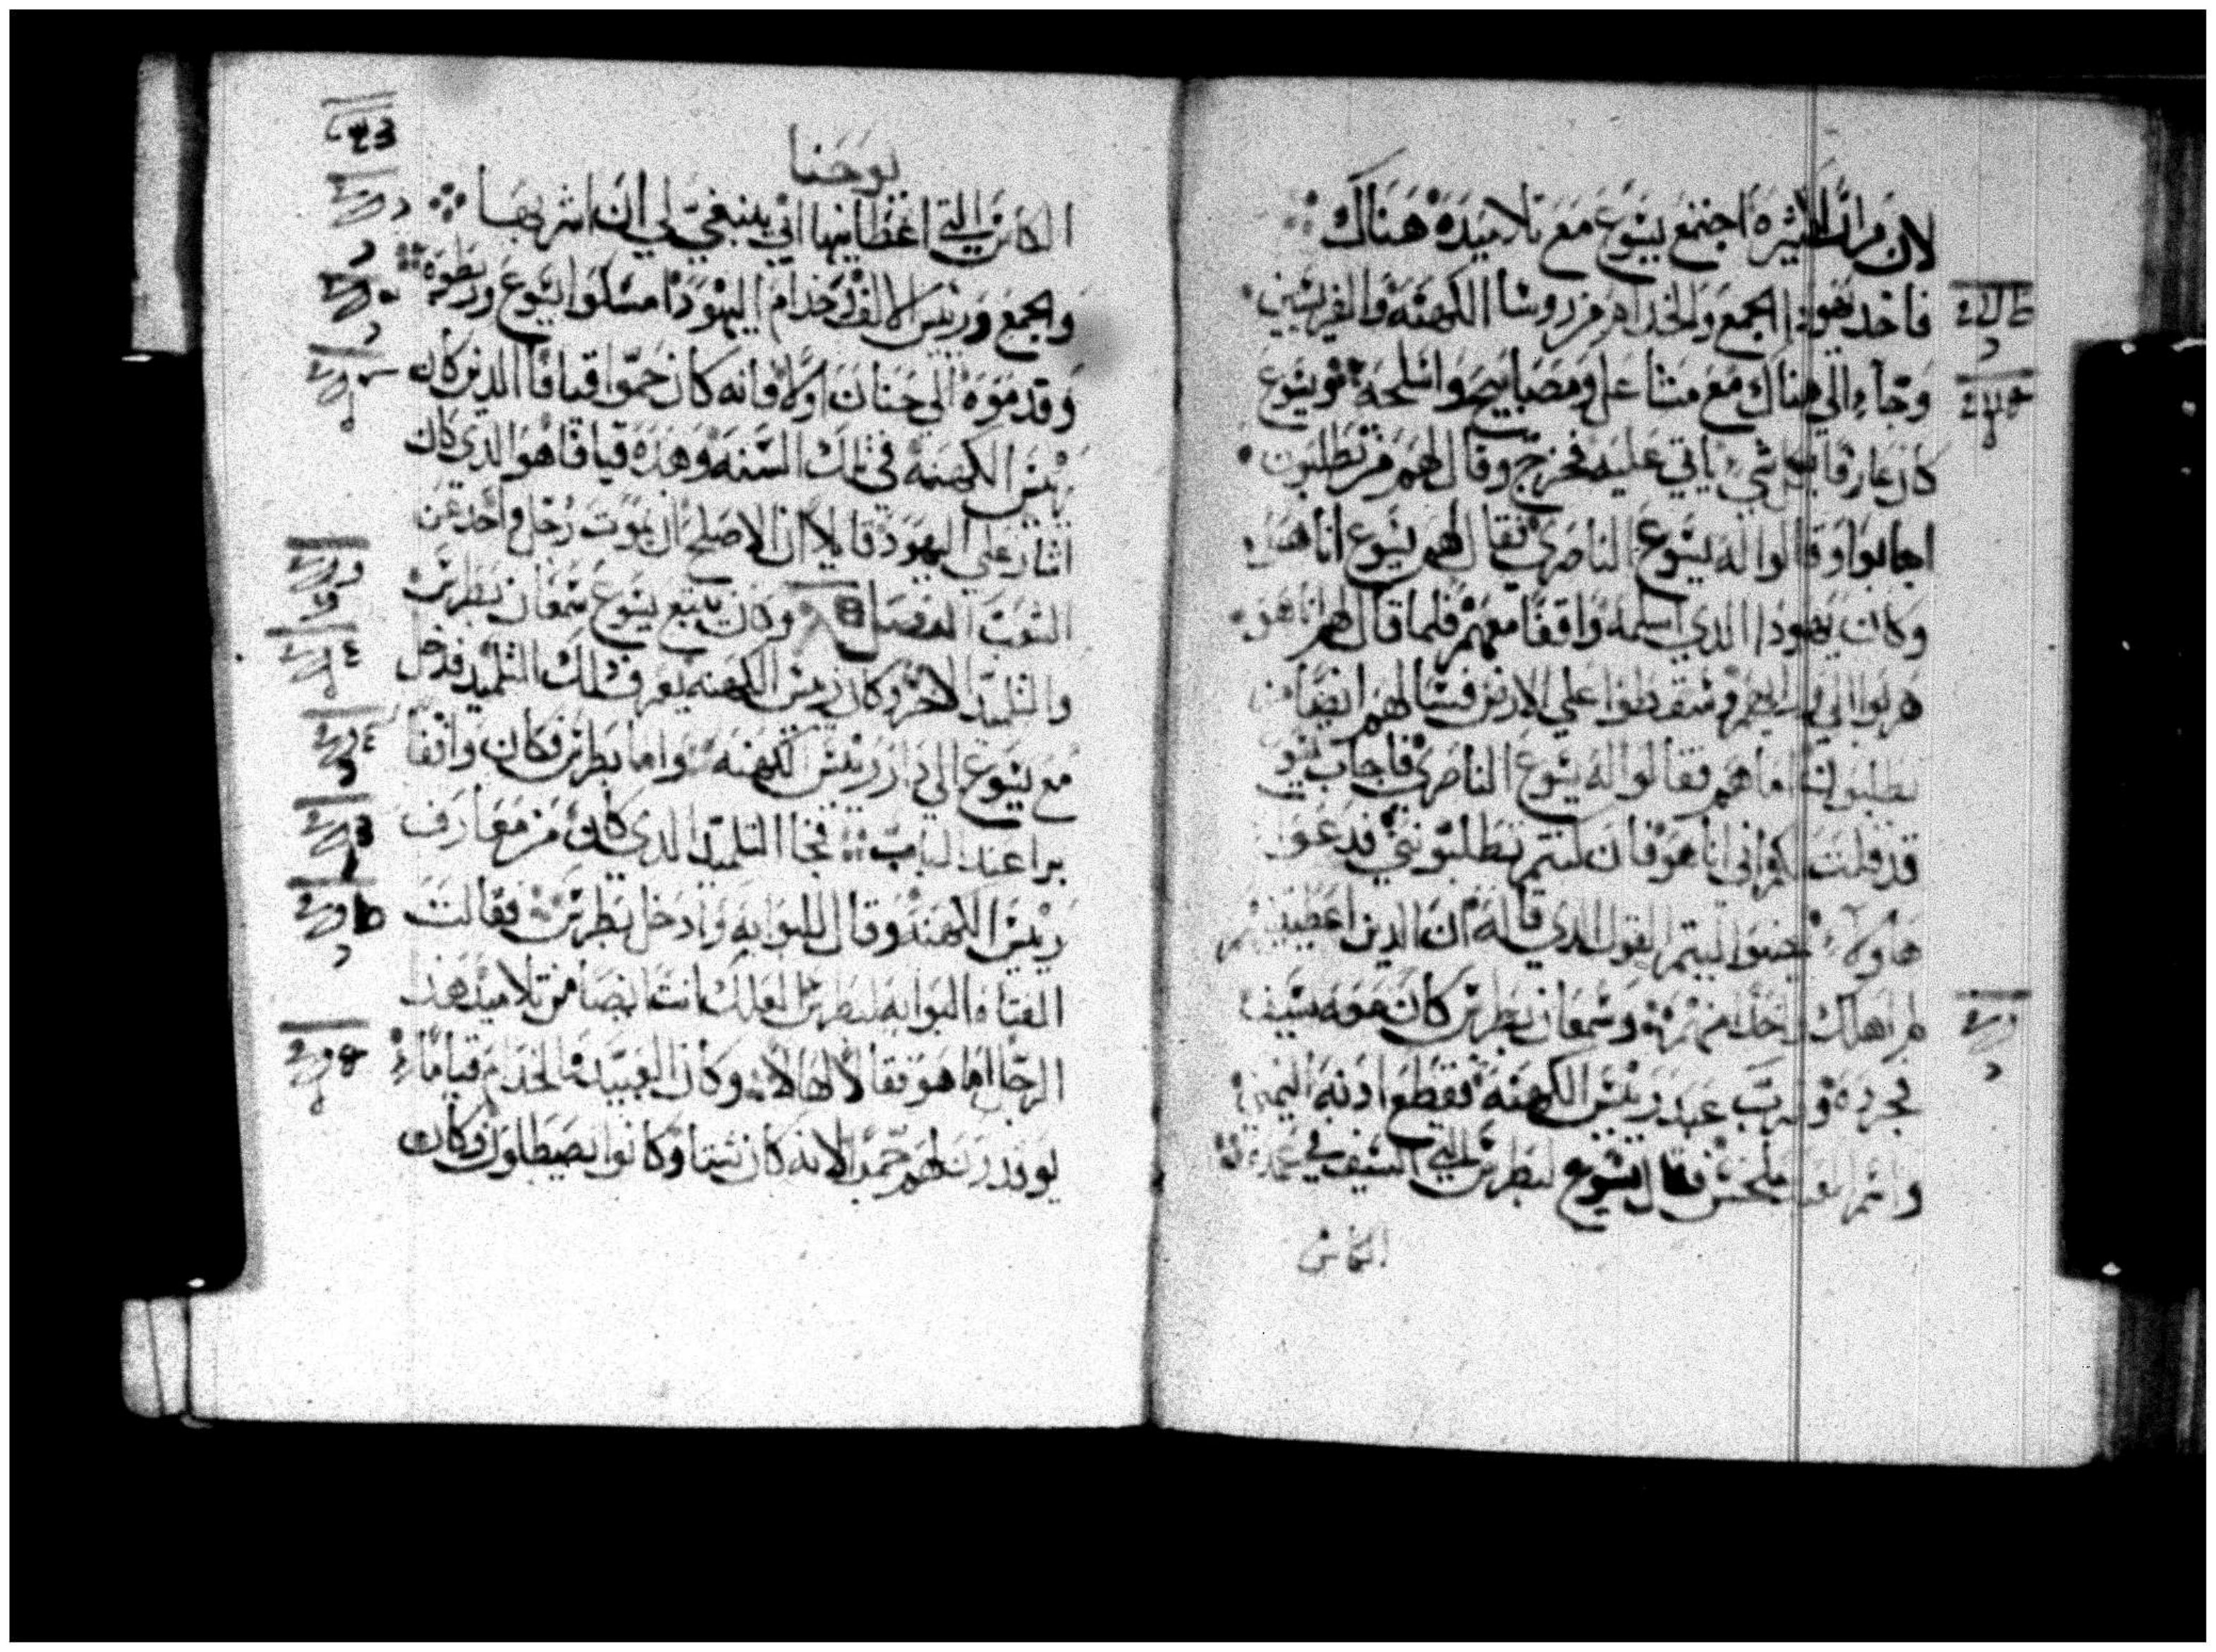 لان مرار كثيره اجتمع يسوع مع تلاميده هناك
فاخد يهودا الجمع والخدام من روسا الكهنه والفريسين
وجاء الي هناك مع مشاعل ومصابيح واسلحه ويسوع
كان عارفا بكل شي ياتي عليه فخرج وقال لهم من تطلبون
اجابوا وقالوا له يسوع الناصري فقال لهم يسوع انا هو
وكان يهودا الدي اسلمه واقفا معهم فلما قال لهم انا هو
هربوا الي وراهم وسقطوا علي الارض فسالهم ايضا من
تطلبون اما هم فقالوا له يسوع الناصري فاجاب يسوع
قد قلت لكم اني انا هو فان كنتم تطلبونني فدعوا
هاولاء ليتم القول الدي قاله ان الدين اعطيتنيهم
لم اهلك احدا منهم وسمعان بطرس كان معه سيف
فجرده وضرب عبد رييس الكهنه فقطع ادنه اليمني
واسم العبد ملخس فقال يسوع لبطرس السيف في غمده
الكاس
يوحنا
الكاس التي اعطانيها ابي ينبغي لي ان اشربها
والجمع ورييس الالف وخدام اليهود امسكوا يسوع وربطوه
وقدموه الي حنان اولا فانه كان حموا قيافا الدي كان
رييس الكهنه في تلك السنه وهده قيافا هو الدي كان
اشار علي اليهود قايلا ان الاصلح ان يموت رجل واحد عن
الشعب الفصل وكان يتبع يسوع سمعان بطرس
والتلميد الاخر وكان رييس الكهنه يعرف دلك التلميد فدخل
مع يسوع الي دار رييس الكهنه واما بطرس فكان واقفا
برا عند الباب فجا التلميد الدي كان من معارف
رييس الكهنه وقال للبوابه وادخل بطرس فقالت
الفتاه البوابه لبطرس لعلك انت ايضا من تلاميد هدا
الرجل اما هو فقال لها لا وكان العبيد والخدام قياما
يوقدون لهم جمرا لانه كان شتا وكانوا يصطلون وكان